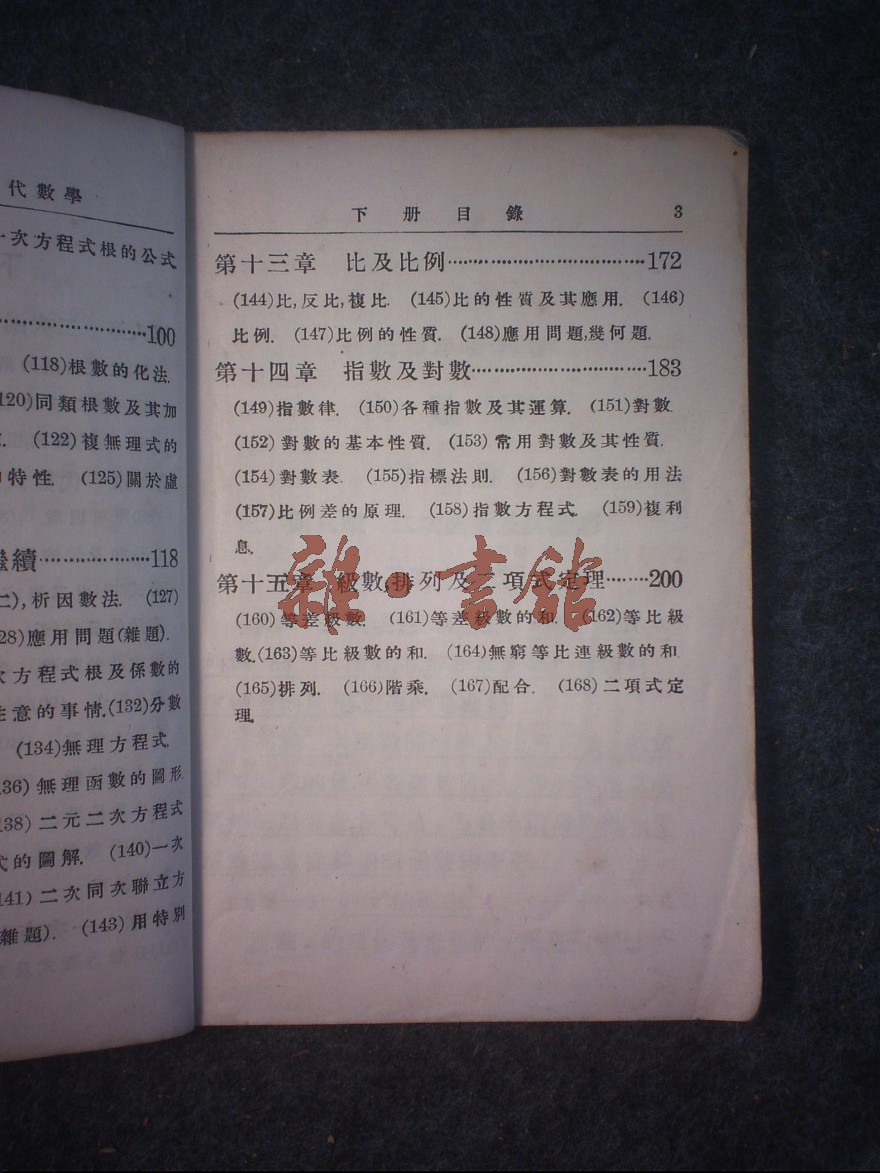 代數學
一次方程式根的公式
100
(118)根數的化法.
120)同類根數及其加
(122)複無理式的
特性. (125)關於虛
續 118
二),析因數法. (127)
28)應用問題(雜題).
次方程式根及係數的
注意的事情.(132)分數
(134)無理方程式.
136)無理函數的圖形.
138)二元二次方程式
式的圖解. (140)一次
141)二次同次聯立方
雜題). (143)用特別
下册目錄 3
第十三章 比及比例……………………………172
(144)比,反比,複比. (145)比的性質及其應用. (146)
比例. (147)比例的性質. (148)應用問題,幾何題.
第十四章 指數及對數…………………………183
(149)指數律. (150)各種指數及其運算. (151)對數.
(152)對數的基本性質. (153)常用對數及其性質.
(154)對數表. (155)指標法則. (156)對數表的用法
(157)比例差的原理. (158)指數方程式. (159)複利
息.
第十五章 級數,排列及二項式定理………200
(160)等差級數. (161)等差級數的和. (162)等比級
數.(163)等比級數的和. (164)無窮等比連級數的和.
(165)排列. (166)階乘. (167)配合. (168)二項式定
理.
雜·書館